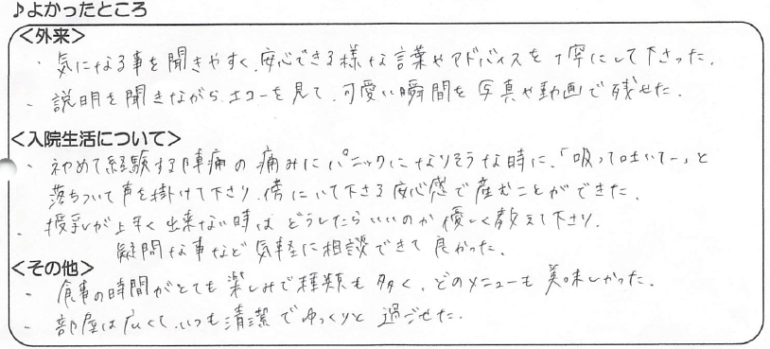 ♪よかったところ
<外来>
・気になる事を聞きやすく、安心できる様な言葉やアドバイスを丁寧にして下さった。
・説明を聞きながらエコーを見て、可愛い瞬間を写真や動画で残せた。
<入院生活について>
・初めて経験する陣痛の痛みにパニックになりそうな時に、「吸って吐いてー」と
落ちついて声を掛けて下さり、傍にいて下さる安心感で産むことができた。
・授乳が上手く出来ない時はどうしたらいいのか優しく教えて下さり、
疑問な事など気軽に相談できて良かった。
<その他>
・食事の時間がとても楽しみで種類も多く、どのメニューも美味しかった。
・部屋は広くて、いつも清潔でゆっくりと過ごせた。